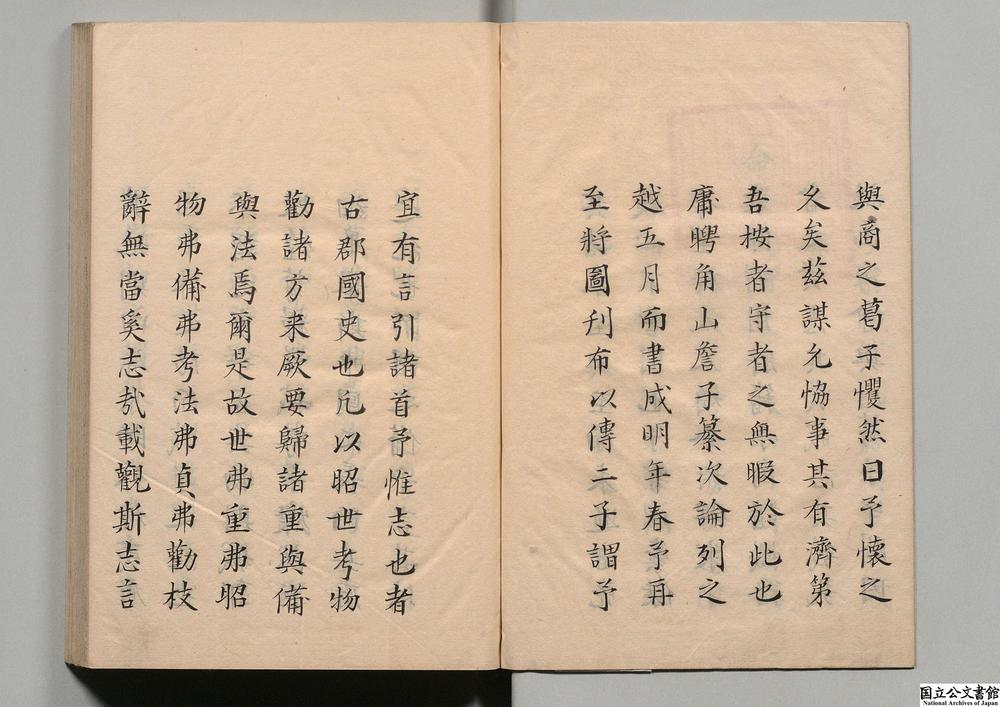 與商之葛子戄然曰予懷之
久矣兹謀允恊事其有濟第
吾桉者守者之無暇於此也
庸聘角山詹子纂次論列之
越五月而書成明年春予再
至將圖刋布以傳二子謂予
宜有言引諸首予惟志也者
古郡國史也凡以昭世考物
勸諸方来厥要歸諸重與備
與法焉爾是故世弗重弗昭
物弗備弗考法弗貞弗勸枝
辭無當奚志㢤載觀斯志言
国立公文書館
National Archives of Japan